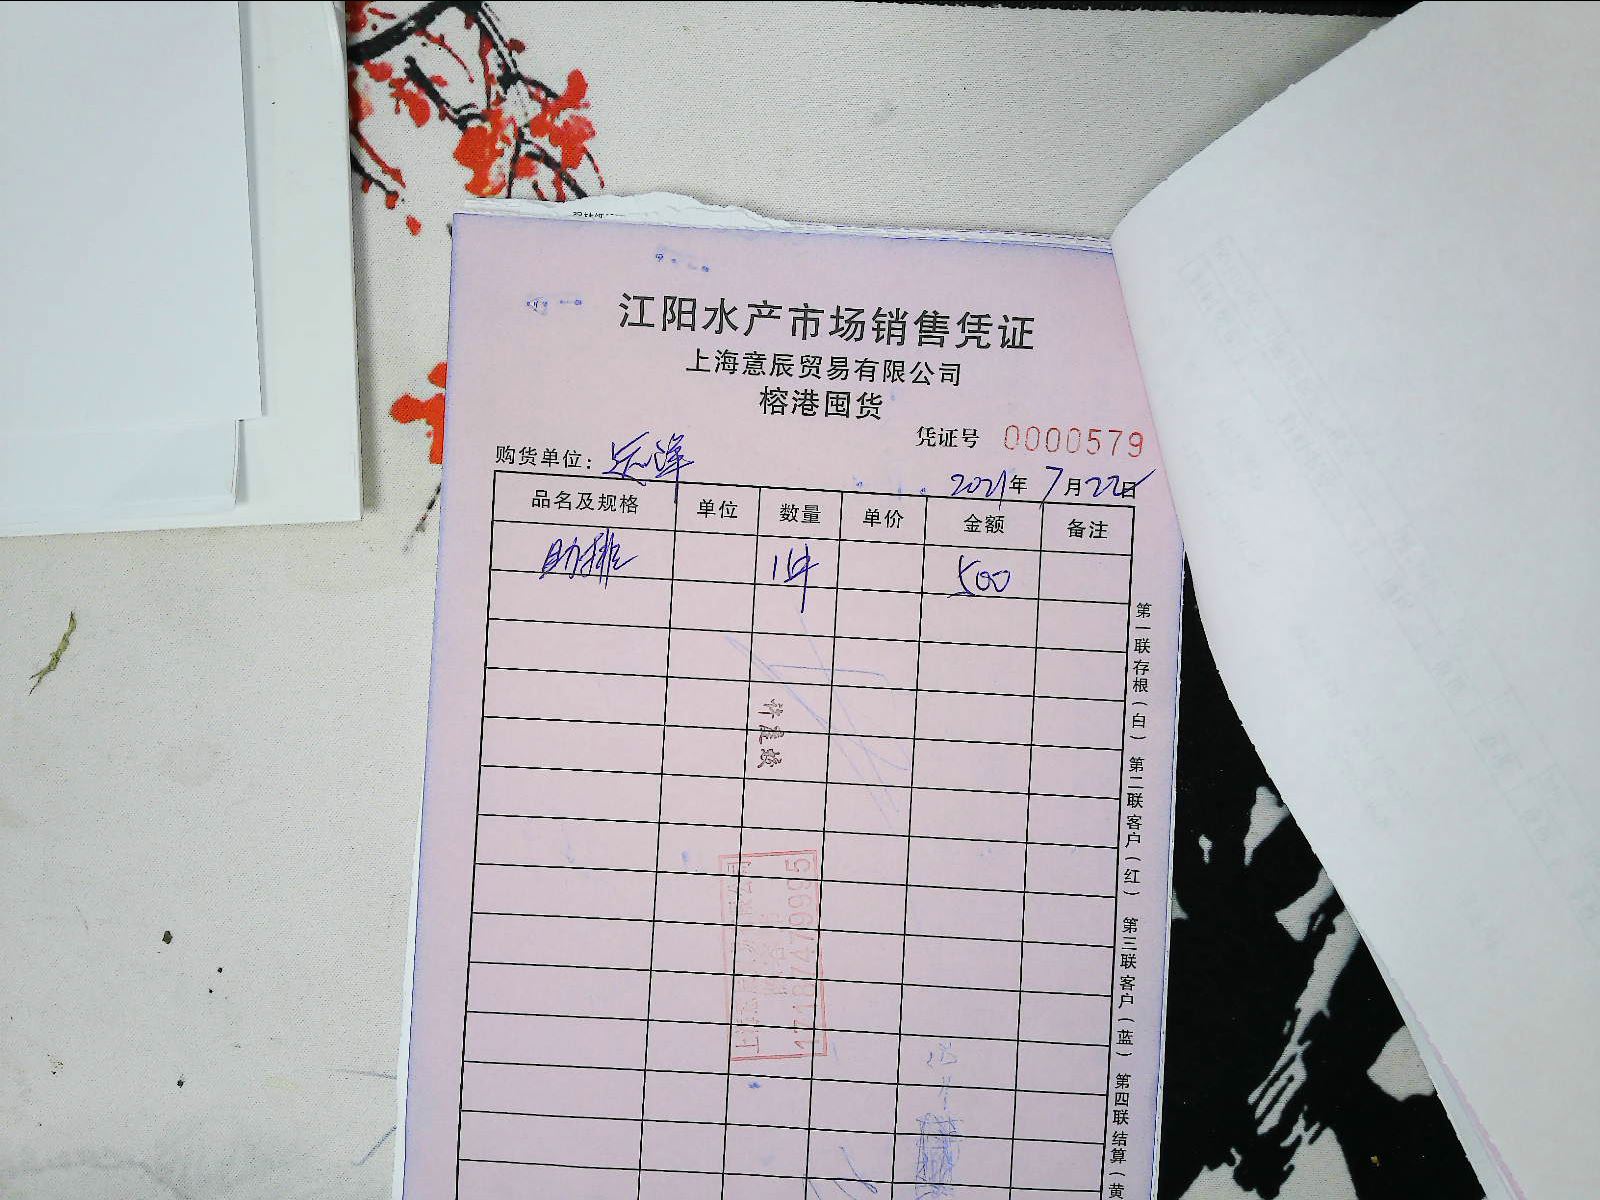 江阳水产市场销售凭证
上海意辰贸易有限公司
榕港囤货
凭证号 0000579
购货单位：乐洋
2021年 7月22日
品名及规格 单位 数量 单价 金额 备注
助排 1件 500
第一联存根（白） 第二联客户（红） 第三联客户（蓝） 第四联结算（黄
许建敏
17187479995